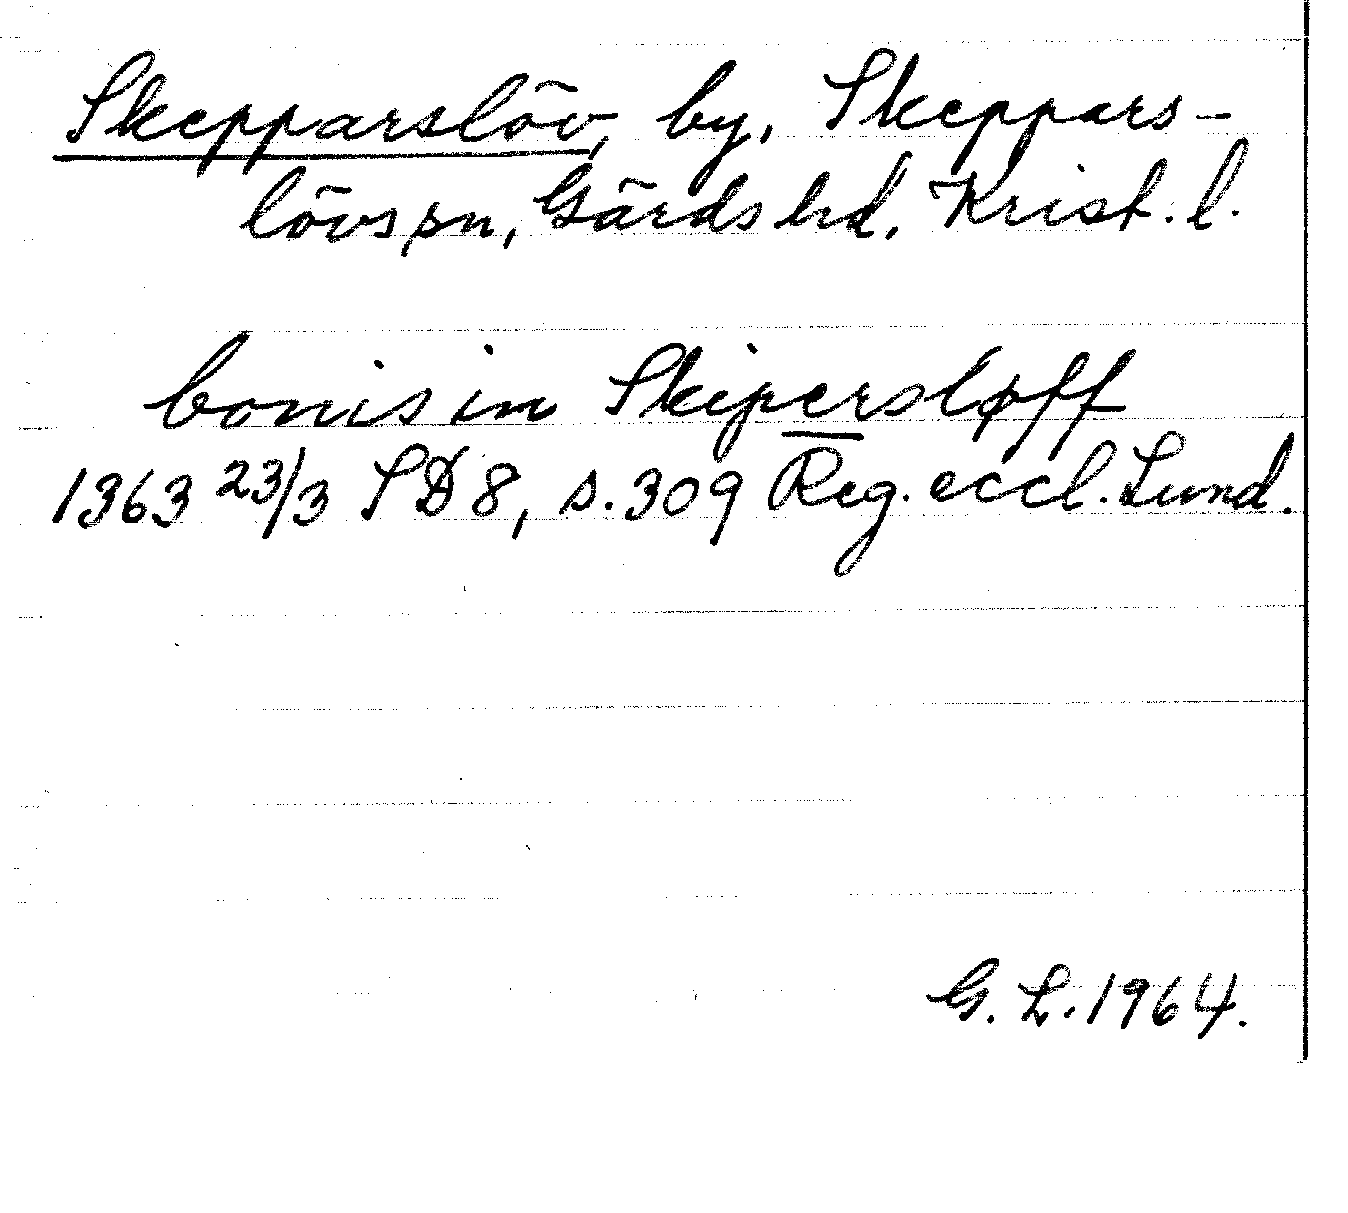 Skepparslöv, by, Skeppars-
lövs sn, Gärds hd, Krist. l.
bonis in Skipersløff
1363 23/3 SD 8, s. 309 Reg. eccl. Lund.
G. L. 1964.